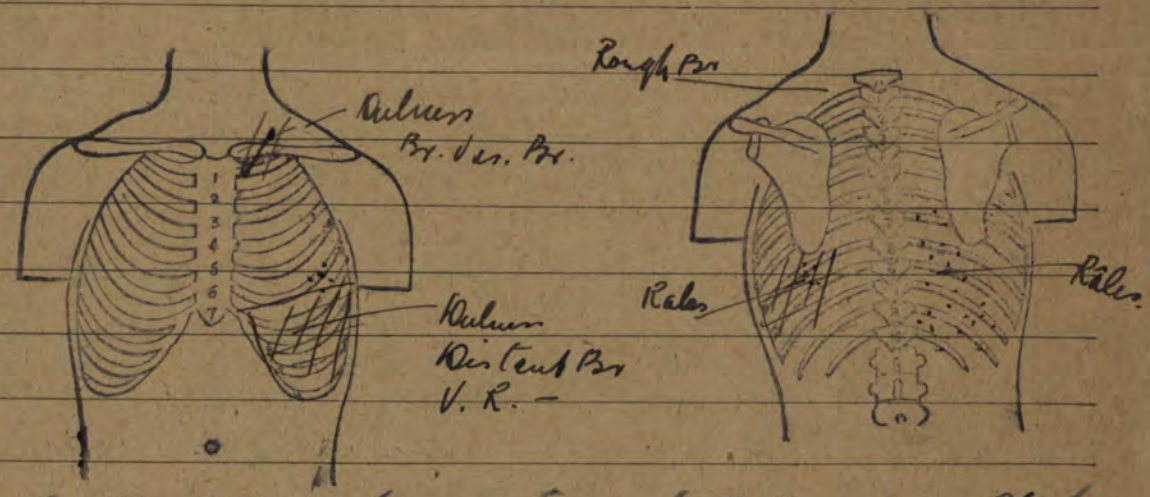 Dulness
Br. Ves. Br.
1
2
3
4
5
6
7
Dulness
Distant Br
V. R. –
Rough Br
Rales
Râles.